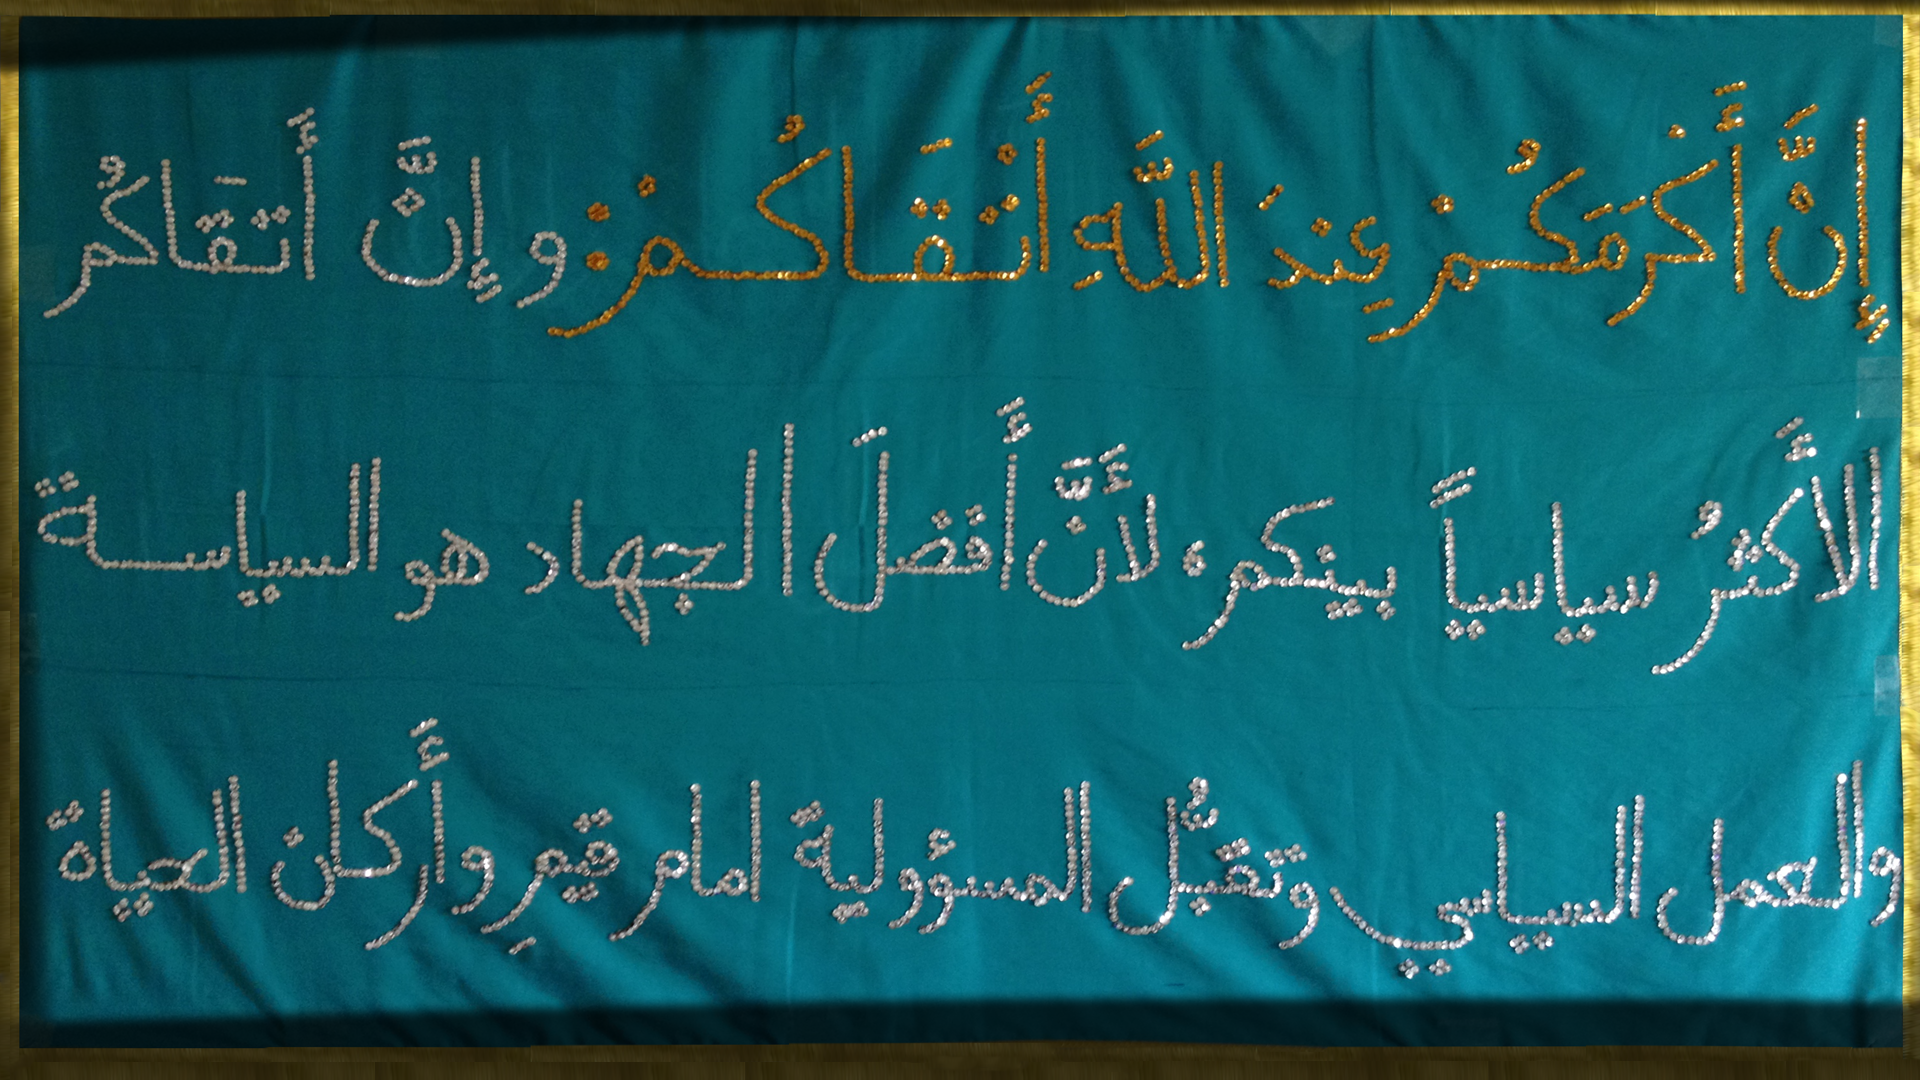 إِنَّ أَكْرَمَكُمْ عِندَ اللَّهِ أَتْقَاكُمْ: وإِنَّ أَتقَاكُم
الأَكثرُ سياسياً بينكم، لأَنَّ أَفضلَ الجهاد هو السياسة
والعمل السياسي وتقبُّل المسؤولية امام قيمِ وأركان الحياة